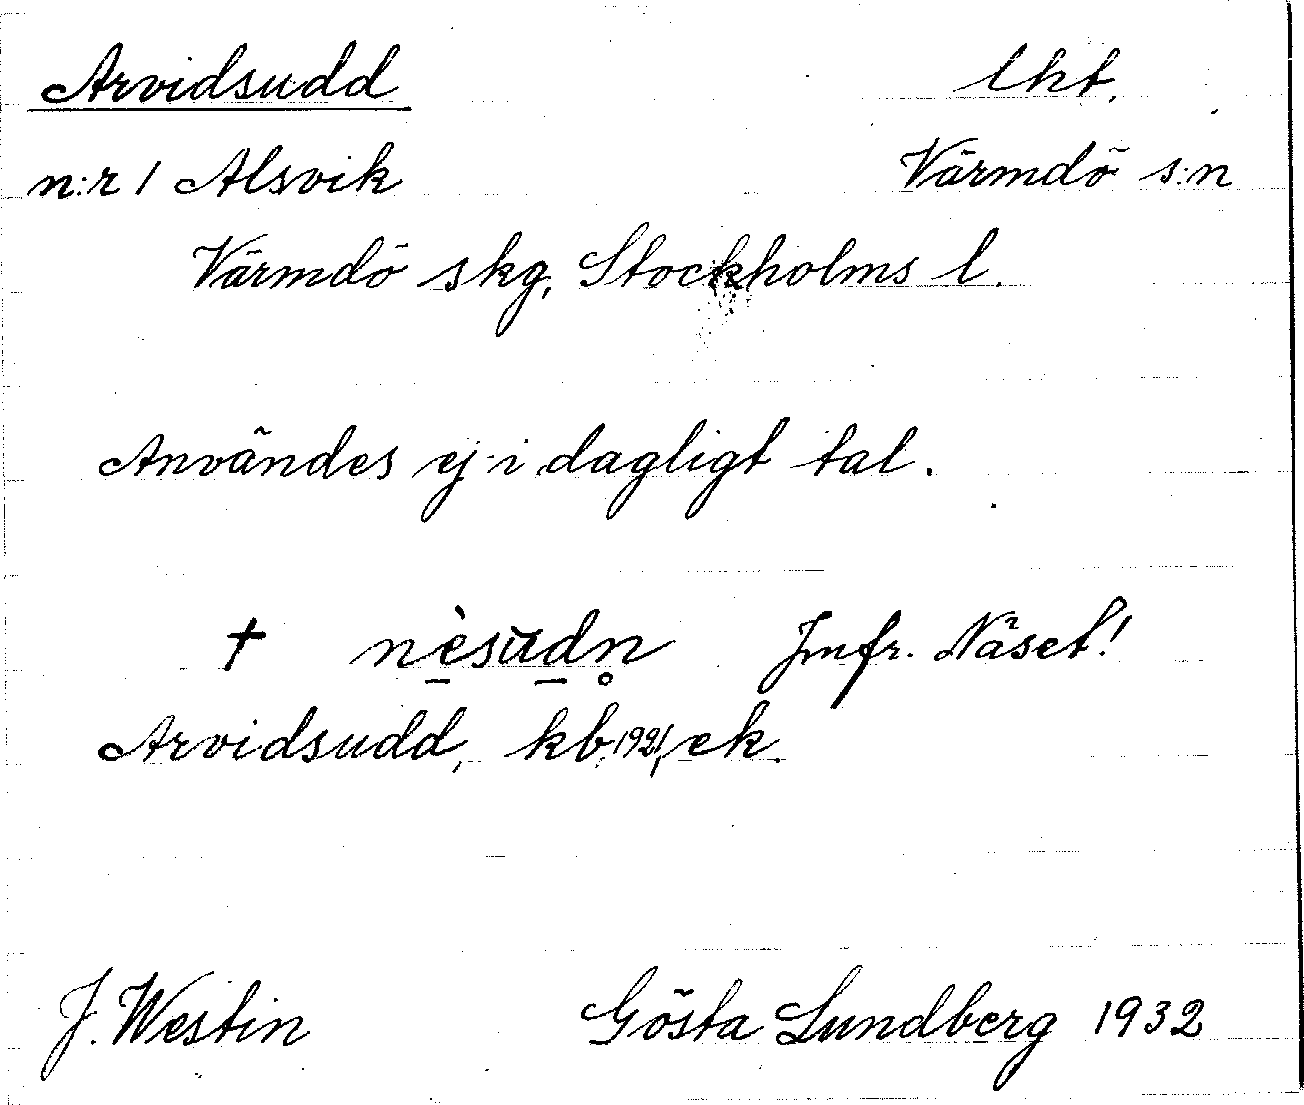 Arvidsudd lht.
n:r 1 Alsvik Värmdö s:n
Värmdö skg, Stockholms l.
Användes ej i dagligt tal.
† nèsu̅dn̥ Jmfr. Näset!
Arvidsudd, kb, 1921, ek.
J. Westin Gösta Lundberg 1932